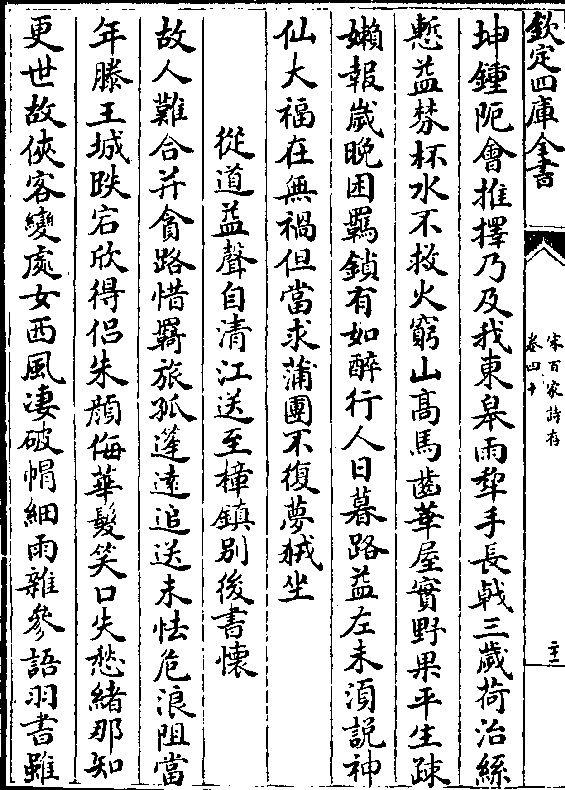 欽定四庫全書
宋百家詩存
卷四十
坤鍾阨會推擇乃及我東皋雨犂手長戟三歲荷治絲
慙益棼杯水不救火窮山髙馬齒華屋實野果平生疎
嬾報歲晚困羈鎖有如醉行人日暮路益左未須説神
仙大福在無禍但當求蒲團不復夢狨坐
從道益聲自清江送至樟鎮别後書懷
故人難合并貪路惜羇旅孤蓬逺追送未怯危浪阻當
年滕王城跌宕欣得侣朱顔侮華髮笑口失愁緒那知
更世故俠客變處女西風淒破帽細雨雜參語羽書雖